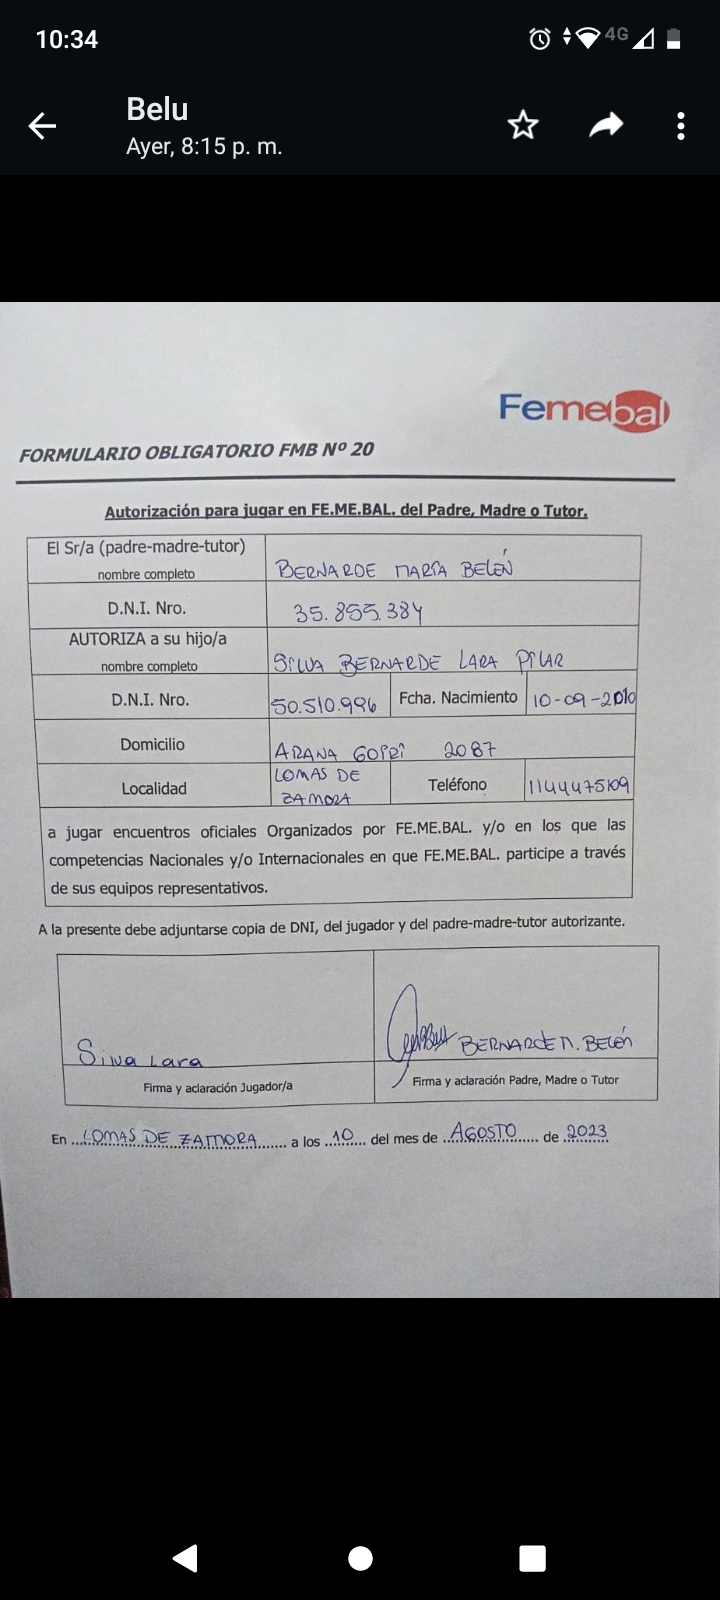 10:34
4G
Belu
Ayer, 8:15 p. m.
Femebal
FORMULARIO OBLIGATORIO FMB Nº 20
Autorización para jugar en FE.ME.BAL. del Padre, Madre o Tutor.
El Sr/a (padre-madre-tutor)
nombre completo
BERNARDE MARÍA BELÉN
D.N.I. Nro.
35.855.384
AUTORIZA a su hijo/a
nombre completo
SILVA BERNARDE LARA PILAR
D.N.I. Nro.
50.510.996
Fcha. Nacimiento
10-09-2010
Domicilio
ARANA GOIRI 2087
Localidad
LOMAS DE
ZAMORA
Teléfono
1144475109
a jugar encuentros oficiales Organizados por FE.ME.BAL. y/o en los que las
competencias Nacionales y/o Internacionales en que FE.ME.BAL. participe a través
de sus equipos representativos.
A la presente debe adjuntarse copia de DNI, del jugador y del padre-madre-tutor autorizante.
Silva Lara
BERNARDE M. BELÉN
Firma y aclaración Jugador/a
Firma y aclaración Padre, Madre o Tutor
En ...LOMAS DE ZAMORA...... a los ..10... del mes de ..AGOSTO..... de .2023.